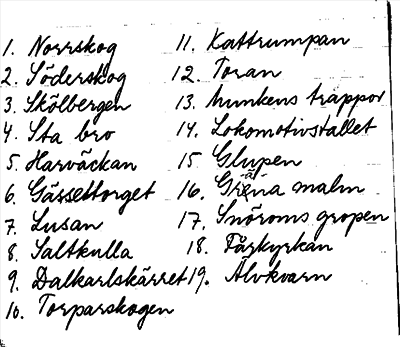 1. Norrskog
2. Söderskog
3. Skölbergen
4. Sta bro
5. Harväckan
6. Gässettorget
7. Lusan
8. Saltkulla
9. Dalkarlskärret
10. Torparskogen
11. Kattrumpan
12. Toran
13. Munkens trappor
14. Lokomotivstallet
15 Glupen
16. Gräna malm
17. Snöroms gropen
18. Fårkyrkan
19. Älvkvarn